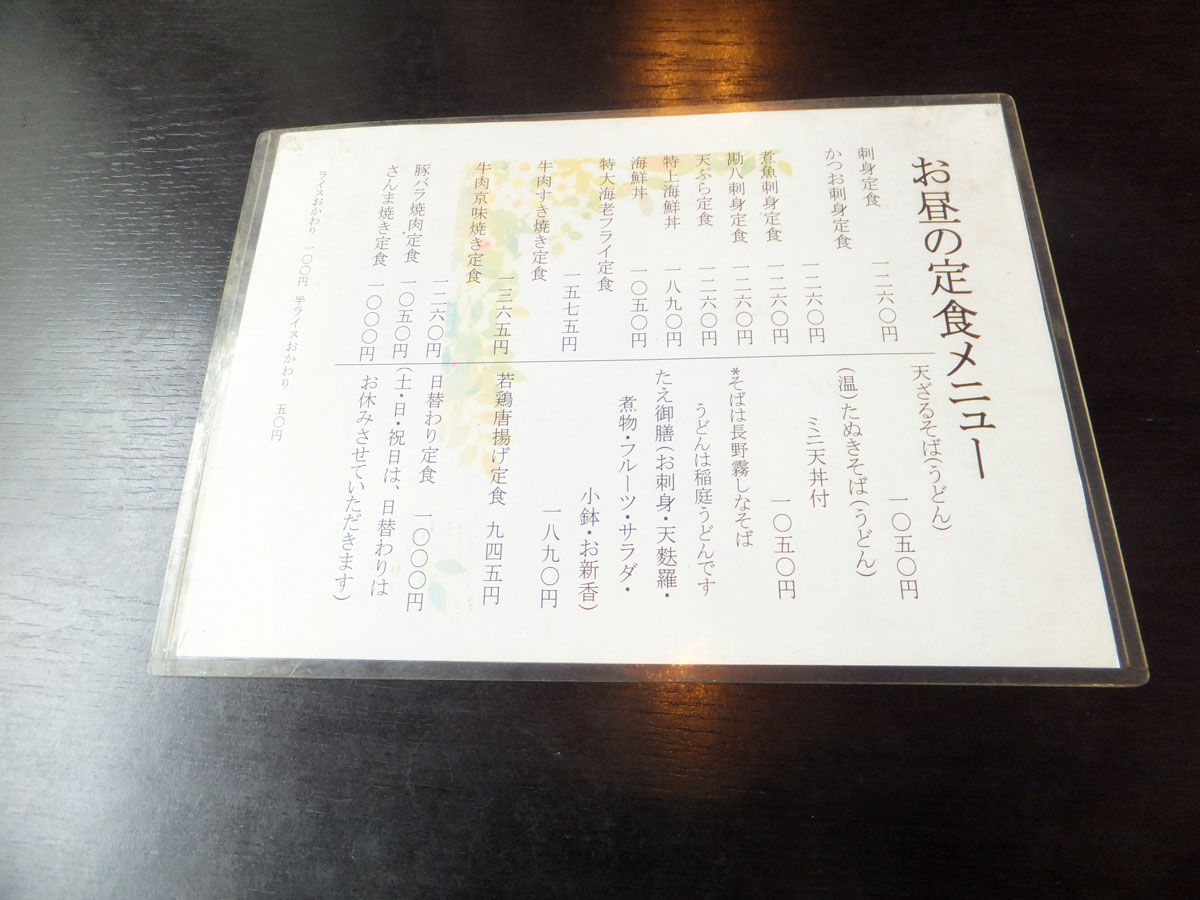 お昼の定食メニュー
刺身定食 一二六〇円
かつお刺身定食 一二六〇円
煮魚刺身定食 一二六〇円
勘八刺身定食 一二六〇円
天ぷら定食 一二六〇円
特上海鮮丼 一八九〇円
海鮮丼 一〇五〇円
特大海老フライ定食 一五七五円
牛肉すき焼き定食 一三六五円
牛肉京味焼き定食 一二六〇円
豚バラ焼肉定食 一〇五〇円
さんま焼き定食 一〇〇〇円
天ざるそば(うどん) 一〇五〇円
(温)たぬきそば(うどん)
ミニ天丼付 一〇五〇円
*そばは長野霧しなそば
うどんは稲庭うどんです
たえ御膳(お刺身・天麩羅・
煮物・フルーツ・サラダ・
小鉢・お新香)
一八九〇円
若鶏唐揚げ定食 九四五円
日替わり定食 一〇〇〇円
(土・日・祝日は、日替わりは
お休みさせていただきます)
ライスおかわり 一〇〇円 半ライスおかわり 五〇円